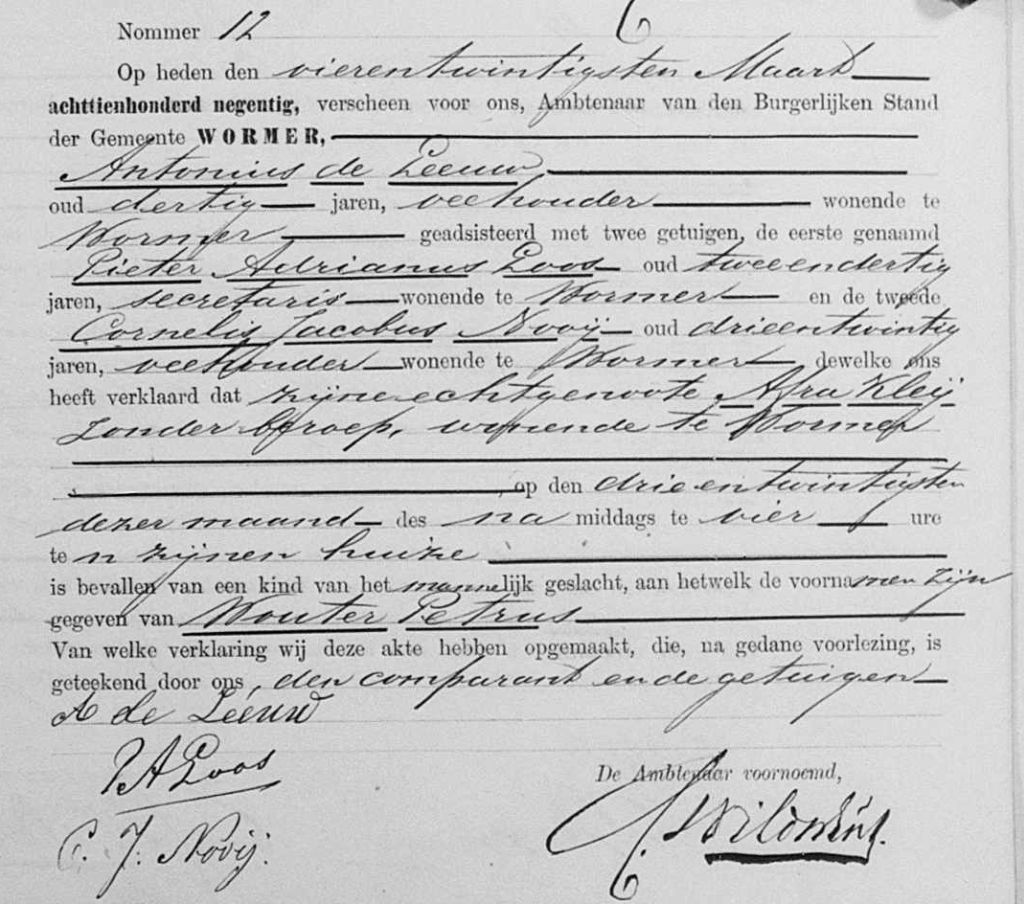 Nommer 12
Op heden den vierentwintigsten Maart
achttienhonderd negentig, verscheen voor ons, Ambtenaar van den Burgerlijken Stand
der Gemeente WORMER,
Antonius de Leeuw
oud dertig jaren, veehouder wonende te
Wormer geadsisteerd met twee getuigen, de eerste genaamd
Pieter Adrianus Loos oud tweeendertig
jaren, secretaris wonende te Wormer en de tweede
Cornelis Jacobus Nooij oud drieentwintig
jaren, veehouder wonende te Wormer, dewelke ons
heeft verklaard dat zijne echtgenoote Afra Kleij
zonder beroep, wonende te Wormer
op den drieentwintigsten
dezer maand des na middags te vier ure
te n zijnen huize
is bevallen van een kind van het mannelijk geslacht, aan hetwelk de voornamen zijn
gegeven van Wouter Petrus
Van welke verklaring wij deze akte hebben opgemaakt, die, na gedane voorlezing, is
geteekend door ons, den comparant en de getuigen
A de Leeuw
P A Loos
De Ambtenaar voornoemd,
C. J. Nooij.